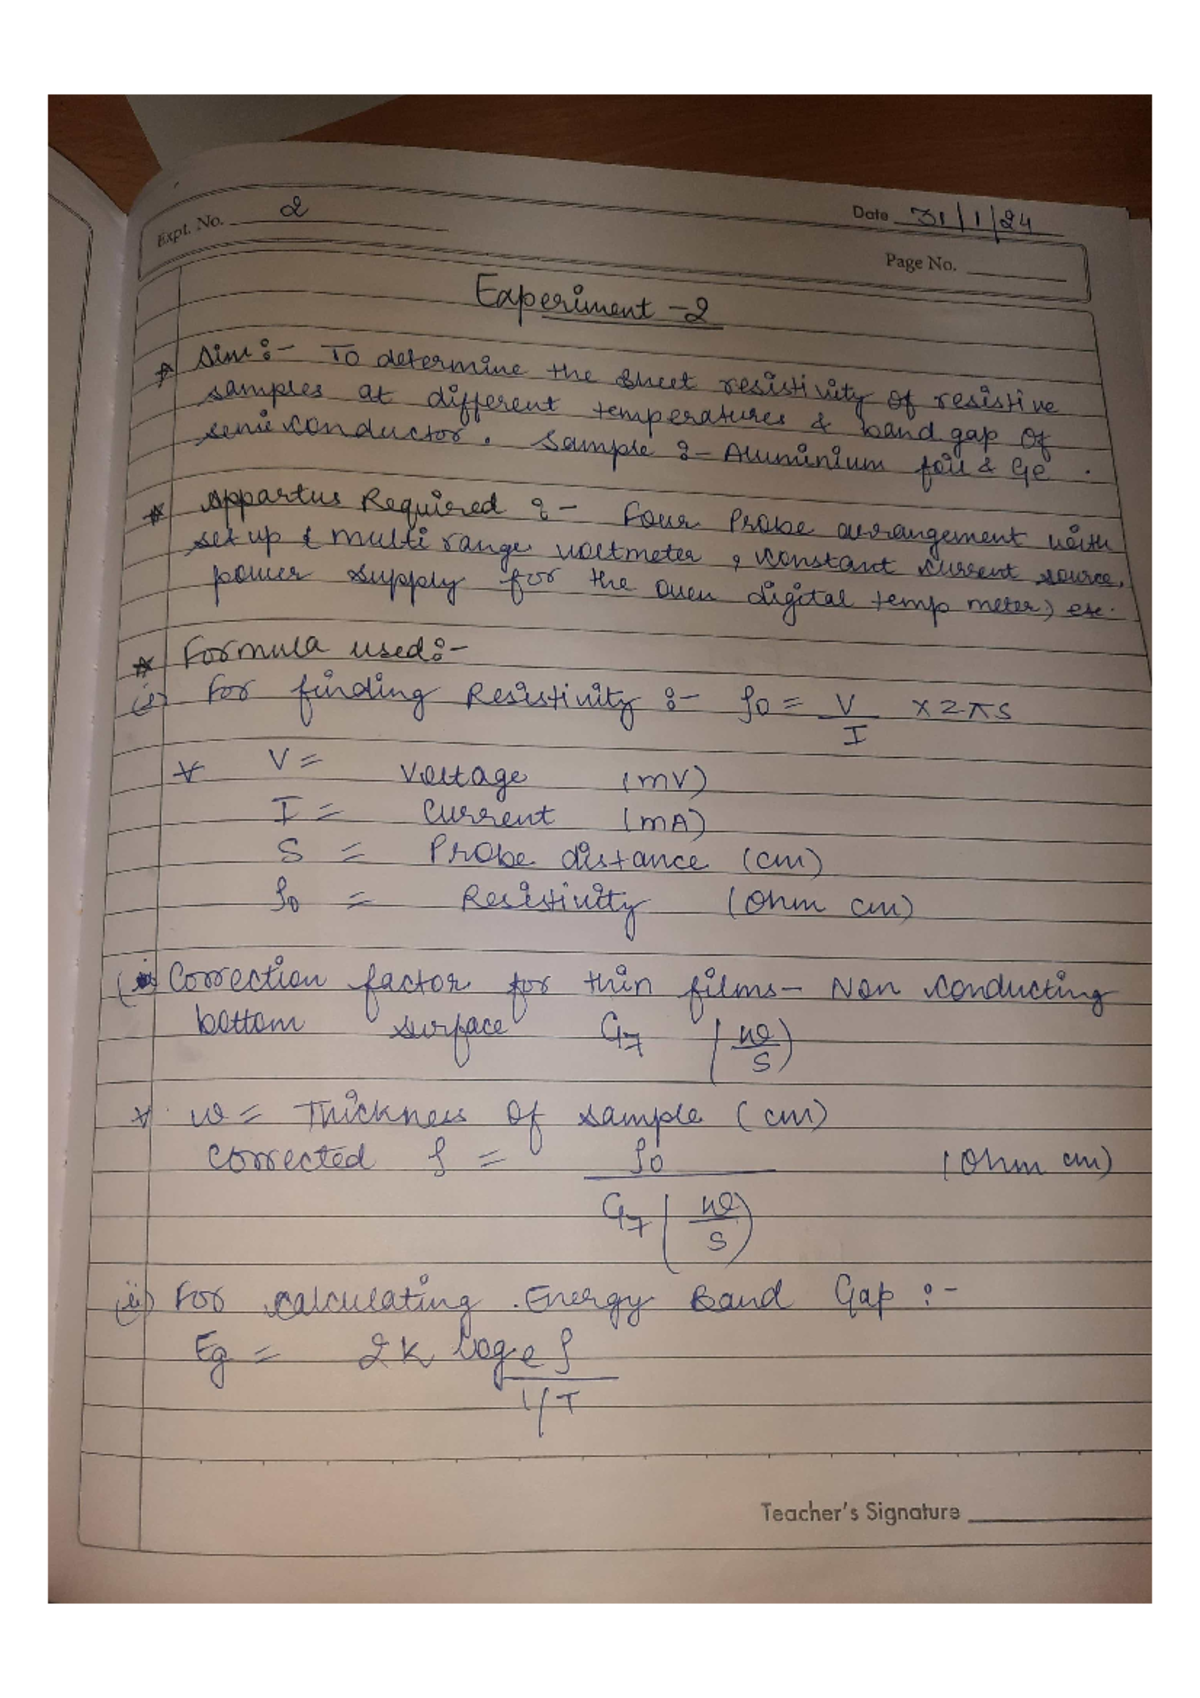 Expt. No. 2
Date 31/1/24
Page No.
Experiment - 2
* Aim :- To determine the sheet resistivity of resistive
samples at different temperatures & band gap of
semiconductor. Sample :- Aluminium foil & Ge.
* Appartus Required :- Four Probe arrangement with
set up & multi range voltmeter, constant current source,
power supply for the oven digital temp meter) etc.
* Formula used :-
(i) For finding Resistivity :- ρ0 = V/I × 2πs
* V = Voltage (mV)
I = Current (mA)
S = Probe distance (cm)
ρ0 = Resistivity (Ohm cm)
Correction factor for thin films - Non conducting
bottom surface G7 (w/s)
* w = Thickness of sample (cm)
corrected ρ = ρ0 / G7 (w/s) (Ohm cm)
(ii) For calculating Energy Band Gap :-
Eg = 2K loge ρ / 1/T
Teacher's Signature